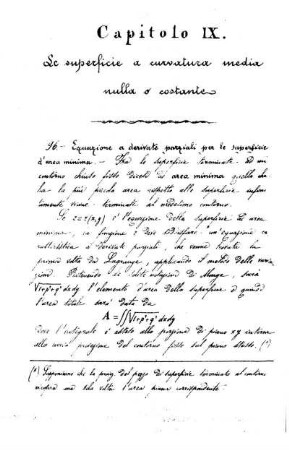 Capitolo IX.
Le superficie a curvatura media
nulla o costante
96.- Equazione a derivate parziali per le superficie
d'area minima. - Fra le superficie terminate ad un
contorno chiuso fisso dicesi ad area minima quella che
ha la più piccola area rispetto alle superficie
vicine terminate al medesimo contorno.
Se z=z(x,y) è l'equazione della superficie ad area
minima, la funzione z deve soddisfare un'equazione
a derivate parziali, che venne trovata la
prima volta da Lagrange, applicando il metodo delle
Ritenendo le solite notazioni di Monge, sarà
√1+p²+q² dxdy l'elemento d'area della superficie e quindi
l'area totale sarà data da
A=∬√1+p²+q² dxdy
dove l'integrale è esteso alla porzione di piano xy interna
alla proiezione del contorno fisso sul piano stesso. (*)
(*) Supponiamo che la proiez. del pezzo di superficie terminato al contorno
ricopra una sola volta l'area piana corrispondente.